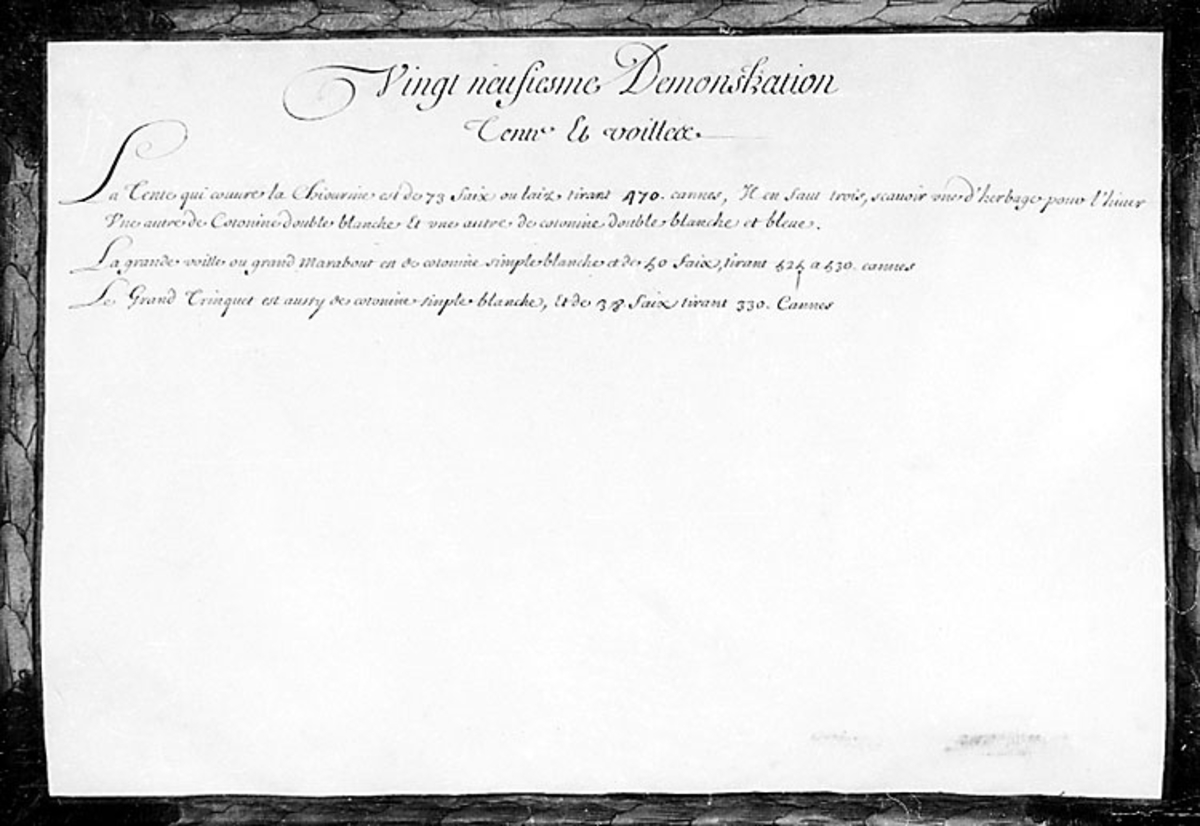 Vingt neufiesme Demonstration
Tente Et voilles
La Tente qui couure la Chiourme est de 73 faix ou laize tirant 470. cannes, Il en faut trois, scauoir vne d'herbage pour l'hiuer
Vne autre de Cotonine double blanche Et vne autre de cotonine double blanche et bleue.
La grande voille ou grand Marabout en de cotonine simple blanche et de 50 faix, tirant 525 a 530. cannes
Le Grand Trinquet est aussy de cotonine simple blanche, Et de 38 faix tirant 330. Cannes